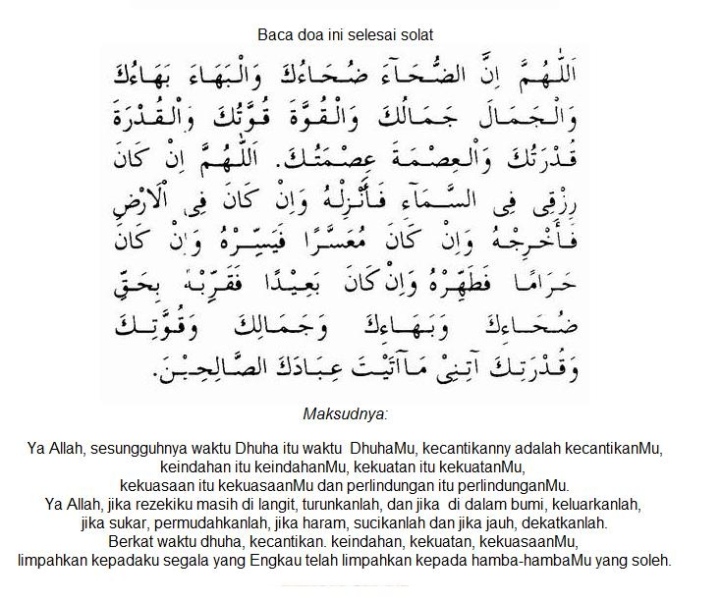 Baca doa ini selesai solat
اَللّٰهُمَّ اِنَّ الضُّحَآءَ ضُحَاءُكَ وَالْبَهَاءَ بَهَاءُكَ
وَالْجَمَالَ جَمَالُكَ وَالْقُوَّةَ قُوَّتُكَ وَالْقُدْرَةَ
قُدْرَتُكَ وَالْعِصْمَةَ عِصْمَتُكَ. اَللّٰهُمَّ اِنْ كَانَ
رِزْقِى فِى السَّمَآءِ فَأَنْزِلْهُ وَاِنْ كَانَ فِى اْلاَرْضِ
فَأَخْرِجْهُ وَاِنْ كَانَ مُعَسَّرًا فَيَسِّرْهُ وَاِنْ كَانَ
حَرَامًا فَطَهِّرْهُ وَاِنْ كَانَ بَعِيْدًا فَقَرِّبْهُ بِحَقِّ
ضُحَاءِكَ وَبَهَاءِكَ وَجَمَالِكَ وَقُوَّتِكَ
وَقُدْرَتِكَ آتِنِىْ مَآاَتَيْتَ عِبَادَكَ الصَّالِحِيْنَ.
Maksudnya:
Ya Allah, sesungguhnya waktu Dhuha itu waktu DhuhaMu, kecantikanny adalah kecantikanMu,
keindahan itu keindahanMu, kekuatan itu kekuatanMu,
kekuasaan itu kekuasaanMu dan perlindungan itu perlindunganMu.
Ya Allah, jika rezekiku masih di langit, turunkanlah, dan jika di dalam bumi, keluarkanlah,
jika sukar, permudahkanlah, jika haram, sucikanlah dan jika jauh, dekatkanlah.
Berkat waktu dhuha, kecantikan. keindahan, kekuatan, kekuasaanMu,
limpahkan kepadaku segala yang Engkau telah limpahkan kepada hamba-hambaMu yang soleh.